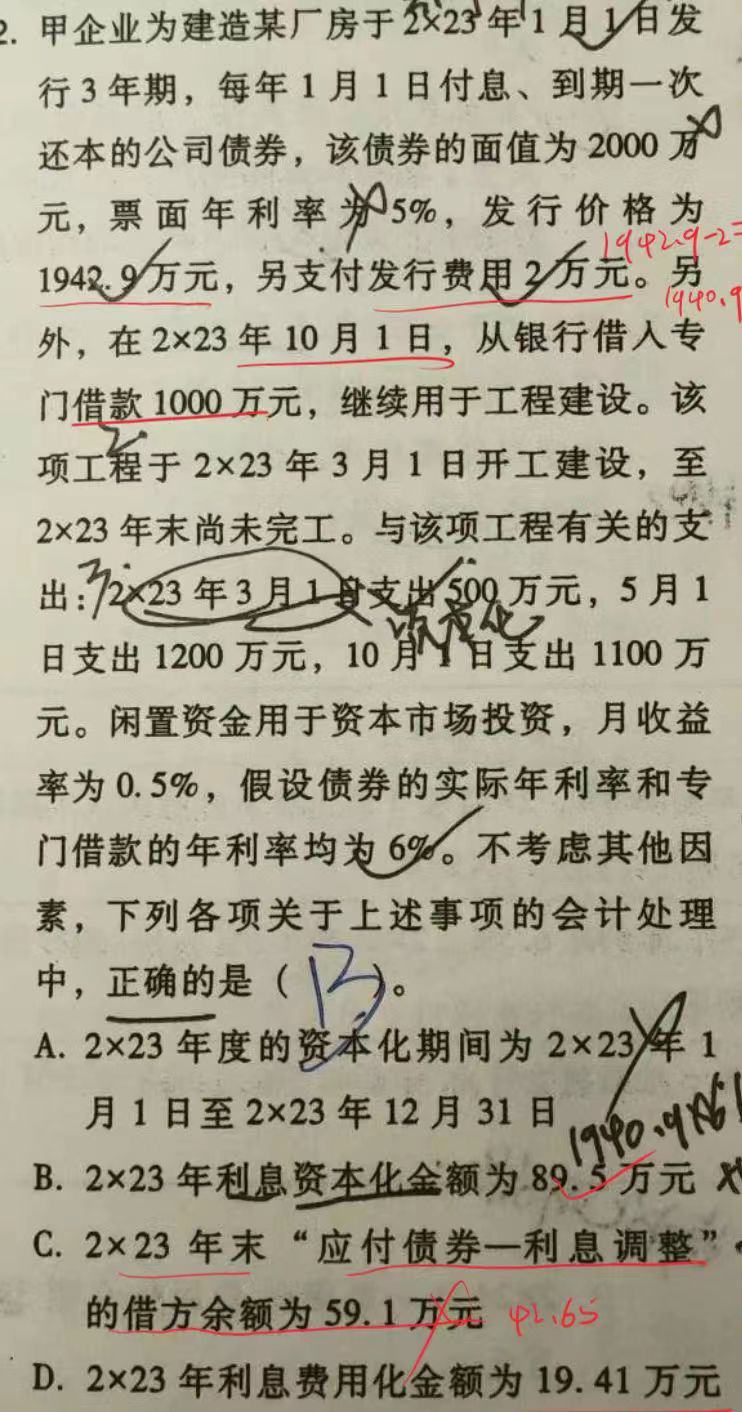 2. 甲企业为建造某厂房于2×23年1月1日发
行3年期，每年1月1日付息、到期一次
还本的公司债券，该债券的面值为2000万
元，票面年利率为5%，发行价格为
1942.9-2=
1942.9万元，另支付发行费用2万元。另
1940.9
外，在2×23年10月1日，从银行借入专
门借款1000万元，继续用于工程建设。该
项工程于2×23年3月1日开工建设，至
2×23年末尚未完工。与该项工程有关的支
出：2×23年3月1日支出500万元，5月1
日支出1200万元，10月1日支出1100万
元。闲置资金用于资本市场投资，月收益
率为0.5%，假设债券的实际年利率和专
门借款的年利率均为6%。不考虑其他因
素，下列各项关于上述事项的会计处理
中，正确的是（B）。
A. 2×23年度的资本化期间为2×23年1
月1日至2×23年12月31日
1940.9×6%
B. 2×23年利息资本化金额为89.5万元
C. 2×23年末“应付债券—利息调整”
的借方余额为59.1万元 42.65
D. 2×23年利息费用化金额为19.41万元